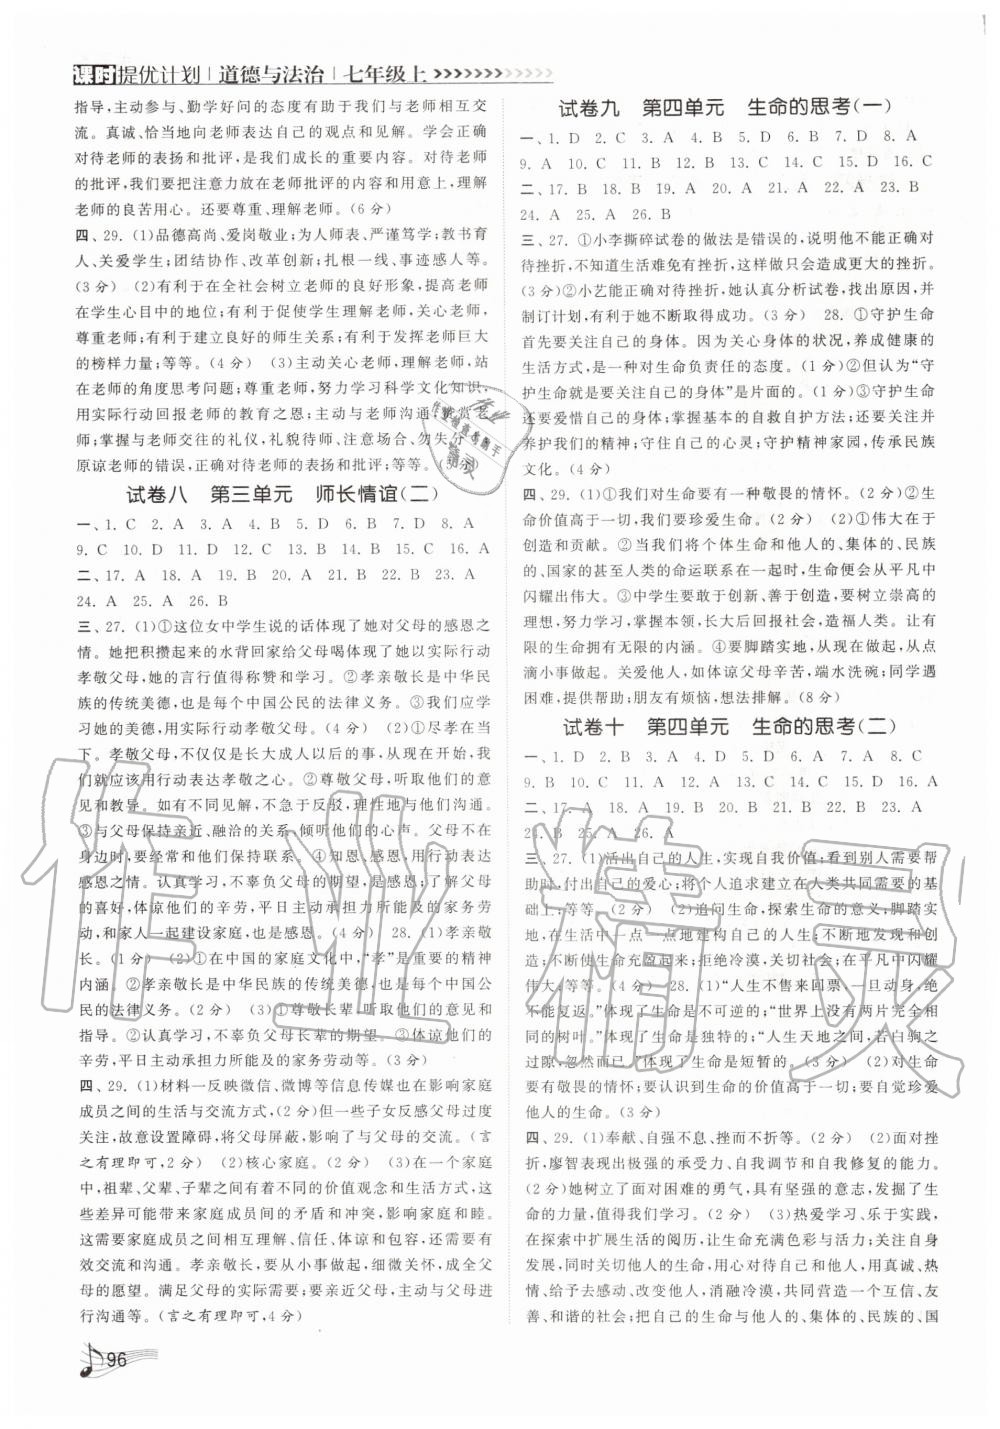 课时提优计划 | 道德与法治 | 七年级上
指导,主动参与、勤学好问的态度有助于我们与老师相互交
流。真诚、恰当地向老师表达自己的观点和见解。学会正确
对待老师的表扬和批评,是我们成长的重要内容。对待老师
的批评,我们要把注意力放在老师批评的内容和用意上,理解
老师的良苦用心。还要尊重、理解老师。(6 分)
四、29. (1)品德高尚、爱岗敬业;为人师表、严谨笃学;教书育
人、关爱学生;团结协作、改革创新;扎根一线、事迹感人等。
(3 分) (2)有利于在全社会树立老师的良好形象,提高老师
在学生心目中的地位;有利于促使学生理解老师,关心老师,
尊重老师;有利于建立良好的师生关系;有利于发挥老师巨大
的榜样力量;等等。(4 分) (3)主动关心老师,理解老师,站
在老师的角度思考问题;尊重老师,努力学习科学文化知识,
用实际行动回报老师的教育之恩;主动与老师沟通,欣赏老
师;掌握与老师交往的礼仪,礼貌待师、注意场合、勿失分寸;
原谅老师的错误,正确对待老师的表扬和批评;等等。(5 分)
试卷八 第三单元 师长情谊(二)
一、1. C 2. A 3. A 4. B 5. D 6. B 7. D 8. A
9. C 10. D 11. D 12. D 13. B 14. C 15. C 16. A
二、17. A 18. A 19. A 20. A 21. B 22. B 23. A
24. A 25. A 26. B
三、27. (1)①这位女中学生说的话体现了她对父母的感恩之
情。她把积攒起来的水背回家给父母喝体现了她以实际行动
孝敬父母,她的言行值得称赞和学习。②孝亲敬长是中华民
族的传统美德,也是每个中国公民的法律义务。③我们应学
习她的美德,用实际行动孝敬父母。(4 分) (2)①尽孝在当
下。孝敬父母,不仅仅是长大成人以后的事,从现在开始,我
们就应该用行动表达孝敬之心。②尊敬父母,听取他们的意
见和教导。如有不同见解,不急于反驳,理性地与他们沟通。
③与父母保持亲近、融洽的关系,倾听他们的心声。父母不在
身边时,要经常和他们联系。④知恩、感恩,用行动表达
感恩之情。认真学习,不辜负父母的期望,是感恩,了解父母
的喜好,体谅他们的辛劳,平日主动承担力所能及的家务劳
动,和家人一起建设家庭,也是感恩。(4 分) 28. (1)孝亲敬
长。(1 分) (2)①在中国的家庭文化中,“孝”是重要的精神
内涵。②孝亲敬长是中华民族的传统美德,也是每个中国公
民的法律义务。(2 分) (3)①尊敬长辈,听取他们的意见和
指导。②认真学习,不辜负父母长辈的期望。③体谅他们的
辛劳,平日主动承担力所能及的家务劳动等。(3 分)
四、29. (1)材料一反映微信、微博等信息传媒也在影响家庭
成员之间的生活与交流方式,(2 分)但一些子女反感父母过度
关注,故意设置障碍,将父母屏蔽,影响了与父母的交流。(言
之有理即可,2 分) (2)核心家庭。(2 分) (3)在一个家庭
中,祖辈、父辈、子辈之间有着不同的价值观念和生活经验,
这些差异可能带来家庭成员间的矛盾和冲突,影响和睦。
这需要家庭成员之间理解、信任、体谅和包容,这样会有效促
进交流和沟通。孝亲敬长,要从小事做起,细微关怀,成全父
母的愿望。满足父母的实际需要;要亲近父母,主动与父母进
行沟通等。(言之有理即可,4 分)
96
试卷九 第四单元 生命的思考(一)
一、1. D 2. C 3. A 4. B 5. D 6. B 7. D 8. A
9. A 10. C 11. B 12. B 13. D 14. C 15. D 16. C
二、17. B 18. B 19. B 20. A 21. A 22. A 23. B
24. A 25. A 26. B
三、27. ①小李撕碎试卷的做法是错误的,说明他不能正确对
待挫折,不知道生活难免有挫折,这样做只会造成更大的挫折。
(3 分)②小艺能正确对待挫折,她认真分析试卷,找出原因,并
制订计划,有利于她不断取得成功。(3 分) 28. ①守护生命
首先要关注自己的身体。因为关心身体的状况,养成健康的
生活方式,是一种对生命负责任的态度。(1 分)②认为“守
护生命就是要关注自己的身体”是片面的。(1 分)③守护生命
还要爱惜自己的身体;掌握基本的自救自护方法;还要守住并
养护我们的精神;守住自己的心灵;守护精神家园,传承民族
文化。(4 分)
四、29. (1)①我们对生命要有一种敬畏的情怀。(2 分)②生
命价值高于一切,我们要珍爱生命。(2 分) (2)①伟大在于
创造和贡献。②当我们将个体生命和他人的、集体的、民族
的、国家的甚至人类的命运联系在一起时,生命便会从平凡中
闪耀出伟大。③中学生要敢于创新、善于创造,要树立崇高的
理想,努力学习,掌握本领,长大后回报社会,造福人类。让有
限的生命拥有无限的意义。④要脚踏实地,从现在做起,从点
滴小事做起。关爱他人,如体谅父母辛苦,端水洗碗;同学遇
困难,提供帮助;朋友有烦恼,想法排解。(8 分)
试卷十 第四单元 生命的思考(二)
一、1. D 2. B 3. A 4. D 5. D 6. A 7. A 8. C
9. C 10. C 11. B 12. C 13. C 14. C 15. D 16. A
二、17. A 18. A 19. A 20. B 21. B 22. B 23. A
24. B 25. A 26. A
三、27. (1)活出自己的人生,实现自我价值;看到别人需要帮
助时,付出自己的爱心;将个人追求建立在人类共同需要的基
础上;等等。(2 分) (2)追问生命,探索生命的意义;脚踏实
地,在生活中一点一点地建构自己的人生;不断地发现和创
新,使生命充盈起来;拒绝冷漠,关切社会;在平凡中闪耀
伟大,等等。(4 分) 28. (1)“人生不售来回票,一旦动身,绝
不能复返。”体现了生命是不可逆的;“世界上没有两片完全
相同的树叶。”体现了生命是独特的;“人生天地之间,若白驹之
过隙,忽然而已”体现了生命是短暂的。(3 分) (2)对生命
要有敬畏的情怀;要认识到生命的价值高于一切;要自觉珍爱
他人的生命。(3 分)
四、29. (1)奉献、自强不息、挫而不折等。(2 分) (2)面对挫
折,廖智表现出极强的承受力、自我调节和自我修复的能力。
(2 分)她敢于面对困难的勇气,具有坚强的意志,发掘了生
命的力量,值得我们学习。(2 分) (3)热爱学习、乐于实践,
在探索中扩展生活的阅历,让生命充满色彩与活力;关注自身
发展,同时关切他人的生命,用心对待他人,用真诚、热
情、给予去感动、改变他人,消融冷漠,共同营造一个互信、友
善、和谐的社会;把自己的生命与他人的、集体的、民族的、国
作业精灵